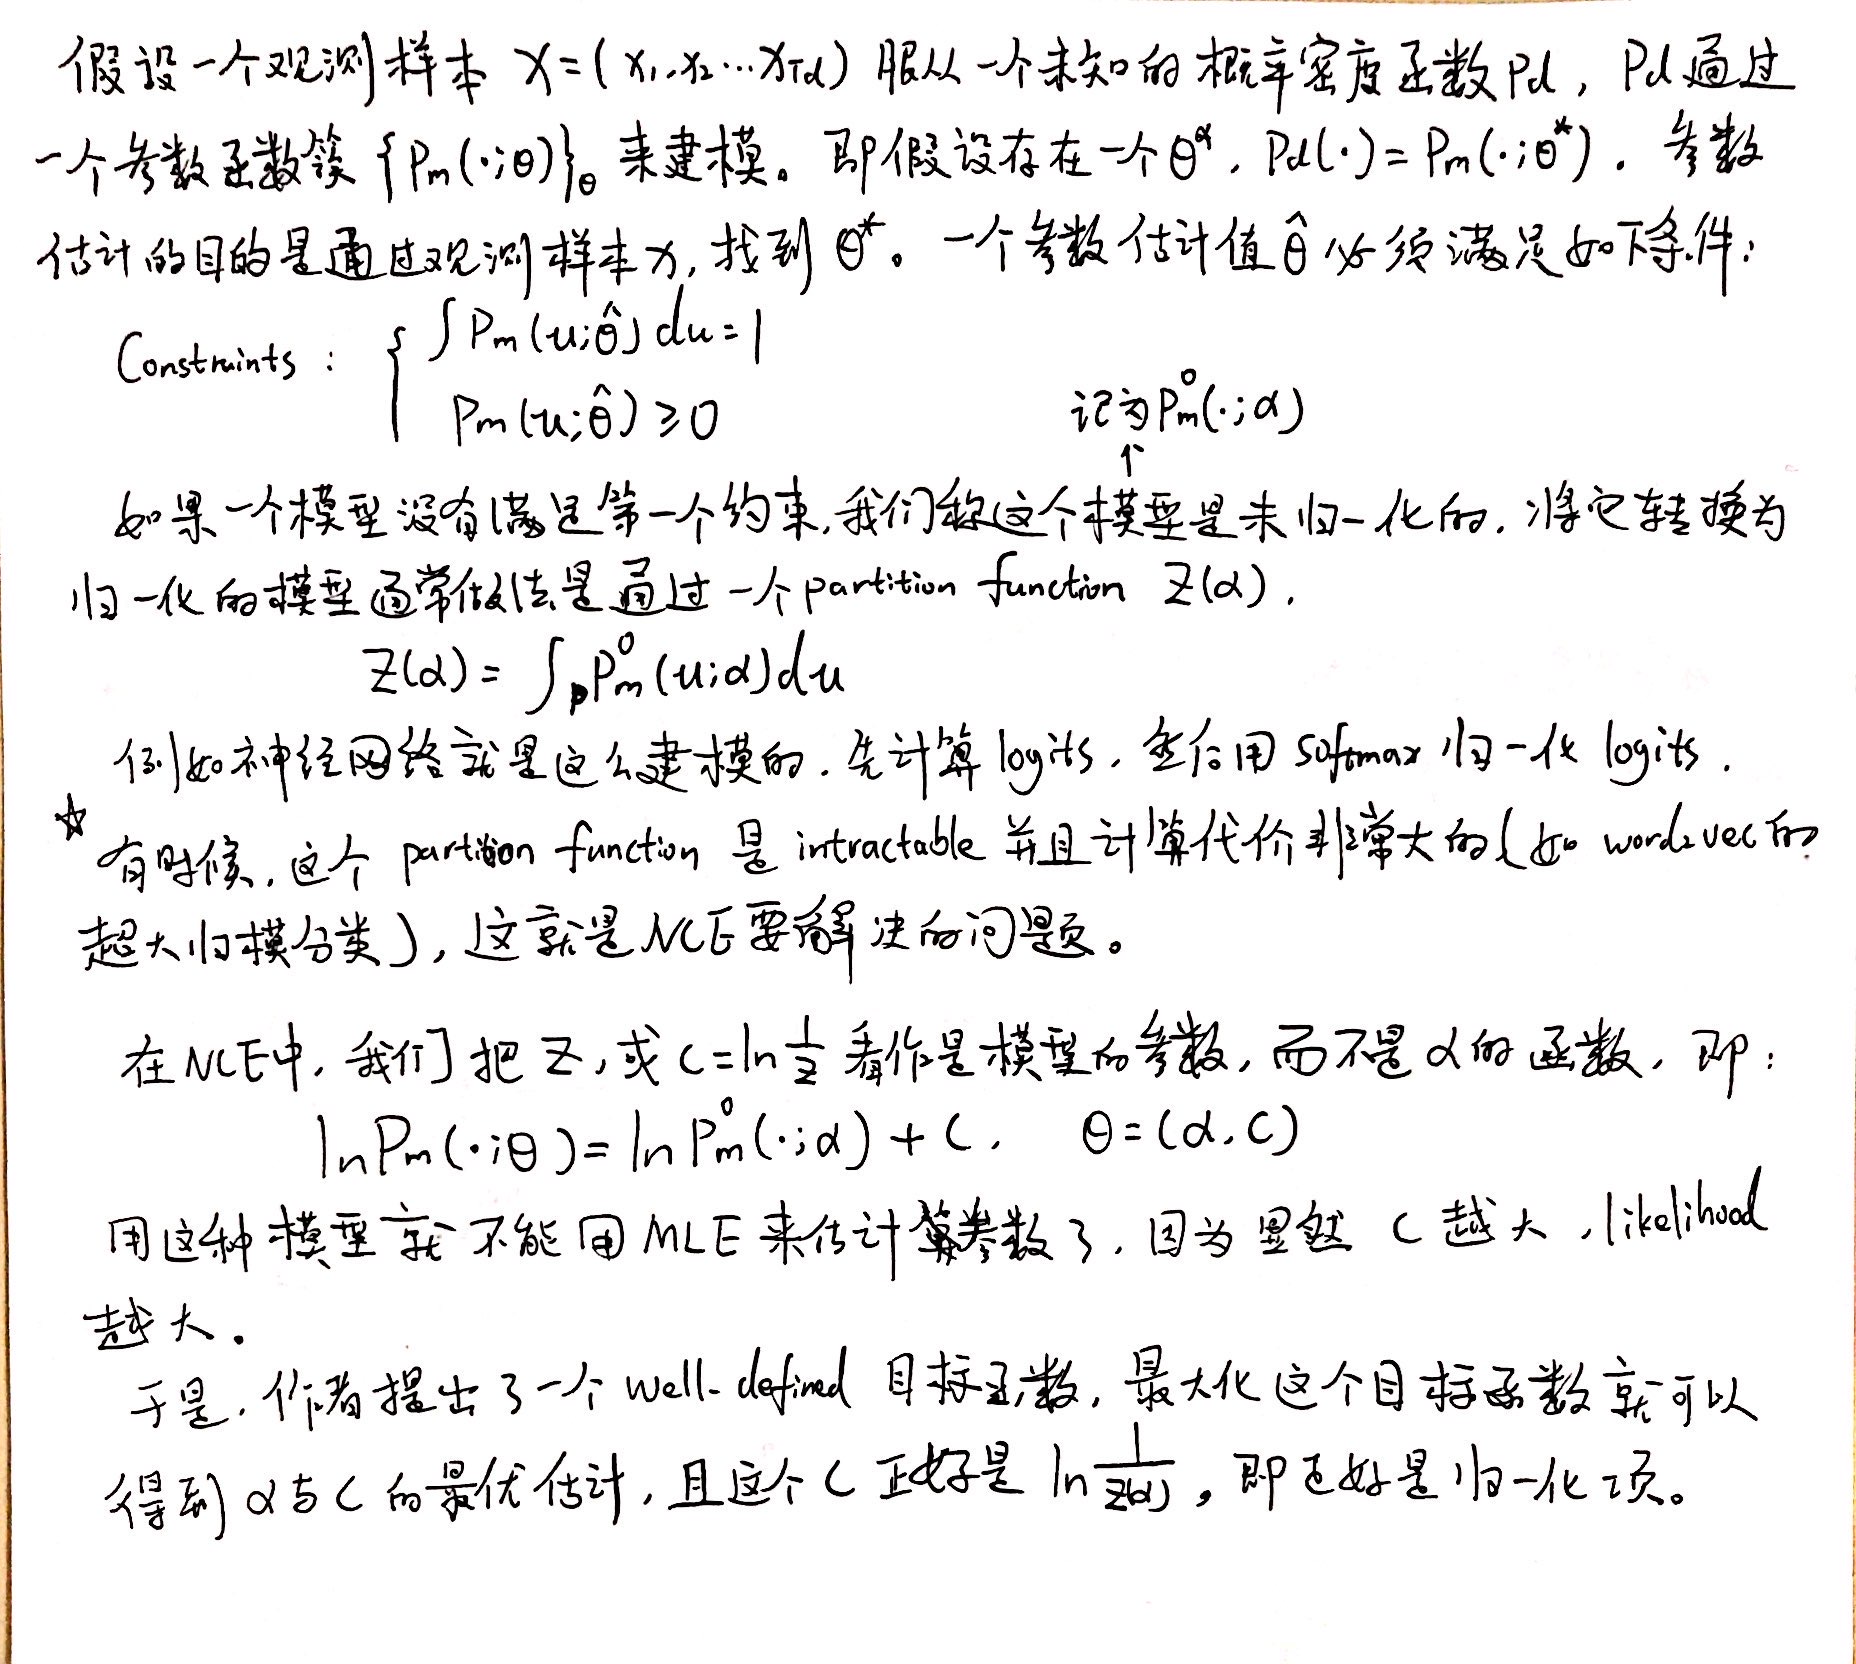 假设一个观测样本 X=(x₁,x₂...x_Td) 服从一个未知的概率密度函数Pd，Pd通过
一个参数函数簇 {Pm(·;θ)}_θ 来建模。即假设存在一个θ*，Pd(·)=Pm(·;θ*)．参数
估计的目的是通过观测样本X，找到θ*。一个参数估计值θ̂必须满足如下条件：
Constraints : { ∫Pm(u;θ̂)du=1
Pm(u;θ̂)≥0
记为Pm⁰(·;α)
↑
如果一个模型没有满足第一个约束，我们称这个模型是未归一化的．将它转换为
归一化的模型通常做法是通过一个partition function Z(α).
Z(α) = ∫Pm⁰(u;α)du
例如神经网络就是这么建模的．先计算logits，然后用softmax归一化logits．
☆
有时候，这个 partition function 是 intractable 并且计算代价非常大的(如 word2vec的
超大归模分类)，这就是NCE要解决的问题。
在NCE中，我们把Z，或 C=ln 1/Z 看作是模型的参数，而不是α的函数，即：
lnPm(·;θ)=lnPm⁰(·;α)+C, θ=(α,C)
用这种模型就不能用MLE来估计参数了，因为显然 C越大，likelihood
越大。
于是，作者提出了一个well-defined 目标函数，最大化这个目标函数就可以
得到α与C的最优估计，且这个C正好是 ln 1/Z(α)，即正好是归一化项。